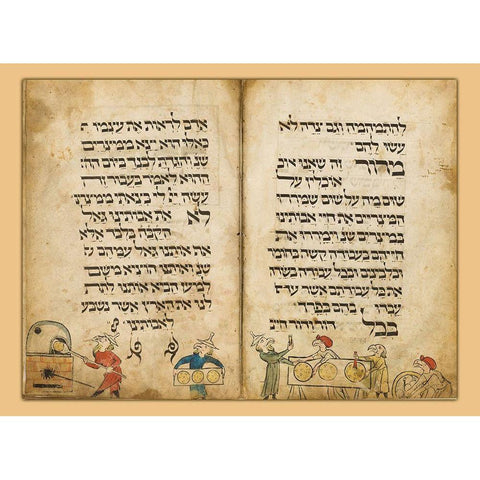 להתמהמה וגם צידה לא
עשו להם
מרור זה שאנו אוכ
אוכלין על
שום מה על שום שמררו
המצריים את חיי אבותינו
במצרים שנ' וימררו את
חייהם בעבודה קשה
בחומר ובלבנים ובכל
עבודה בשדה את
את כל עבודתם אשר עבדו
בהם בפרך
בכל דור ודור חייב
אדם לראות את עצמו
כאילו הוא יצא ממצרים
שנ' והגדת לבנך ביום
ההוא לאמר בעבור זה
עשה יי לי בצאתי ממצרים
לא את אבותינו גאל
הקבה בלבד אלא
אף אותנו גאל עמהם
שנ' ואותנו הוציא משם
למען הביא אותנו לתת
לנו את הארץ אשר נשבע
לאבותינו